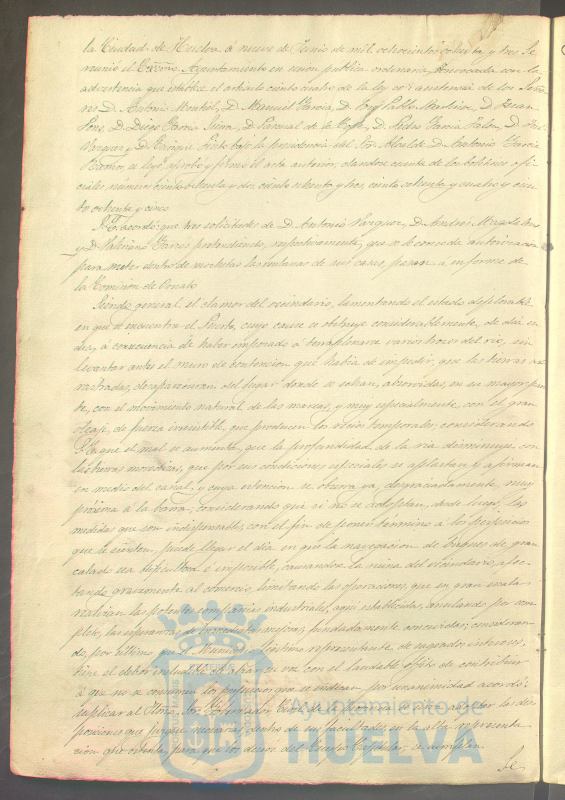 la Ciudad de Huelva á nueve de Junio de mil ochocientos ochenta y tres Se
reunió el Excmo. Ayuntamiento en sesión publica ordinaria, convocada con la
advertencia que establece el artículo ciento cuatro de la ley con asistencia de los Seño-
res D. Antonio Montiél, D. Manuel García, D. José Pablo D. Juan
Pons, D. Diego García D. Manuel de la D. Pedro García Jalon, D. José
Vazquez y D. Enrique Prieto bajo la presidencia del Sor. Alcalde D. Antonio García
Ramos, se leyó, aprobó y firmó el acta anterior, dandose cuenta de los boletines ofi-
ciales, números ciento ochenta y dos, ciento ochenta y tres, ciento ochenta y cuatro y cien-
to ochenta y cinco
acordó: que tres solicitudes de D. Antonio Vazquez, D. Andrés
y D. Valeriano Garcés pretendiendo, respectivamente, que se le conceda autorización
para meter dentro de mochetas las ventanas de sus casas, pasen á informe de
la Comision de Ornato
Siendo general el clamor del vecindario, lamentando el estado deplorable
en que se encuentra el Puerto, cuyo cauce se obstruye considerablemente, de dia en
dia, á consecuencia de haber empezado á terraplenarse varios trozos del rio, sin
levantar antes el muro de contencion que había de impedir, que las tierras
arrastradas, desaparecieran del lugar donde se echan, absorvidas, en su mayor par-
te, con el movimiento natural de las mareas, y muy especialmente, con el gran
oleaje, de fuerza irresistible, que producen los recios temporales; considerando
S. E. que el mal se aumenta, que la profundidad de la ria disminuye con
las tierras movedizas, que por sus condiciones especiales se aplastan y afirman
en medio del canal, y cuya estencion se observa ya, desgraciadamente, muy
próxima á la barra; considerando que si no se adoptan, desde luego, las
medidas que son indispensables, con el fin de poner término á los perjuicios
que se sienten, puede llegar el dia en que la navegacion de buques de gran
calado sea dificultosa é imposible, causandose la ruina del vecindario, afec-
tando gravemente al comercio, limitando las operaciones, que en gran escala
realizan las potentes compañias industriales, aqui establecidas, anulando por com-
pleto, las esperanzas de inmediatas mejoras, fundadamente concebidas; consideran-
do, por último que el Municipio, legítimo representante, de sagrados intereses,
tiene el deber ineludible de alzar su voz con el laudable objeto de contribuir
á que no se consumen los perjuicios que se indican, por unanimidad acordó:
suplicar al Iltmo. Sor. Gobernador Civil de la provincia, se sirva adoptar las dis-
posiciones que juzgue necesarias, dentro de sus facultades, en la alta representa-
cion que ostenta, para que los deseos del Excmo. Cabildo, se cumplan
Se
Ayuntamiento de
HUELVA